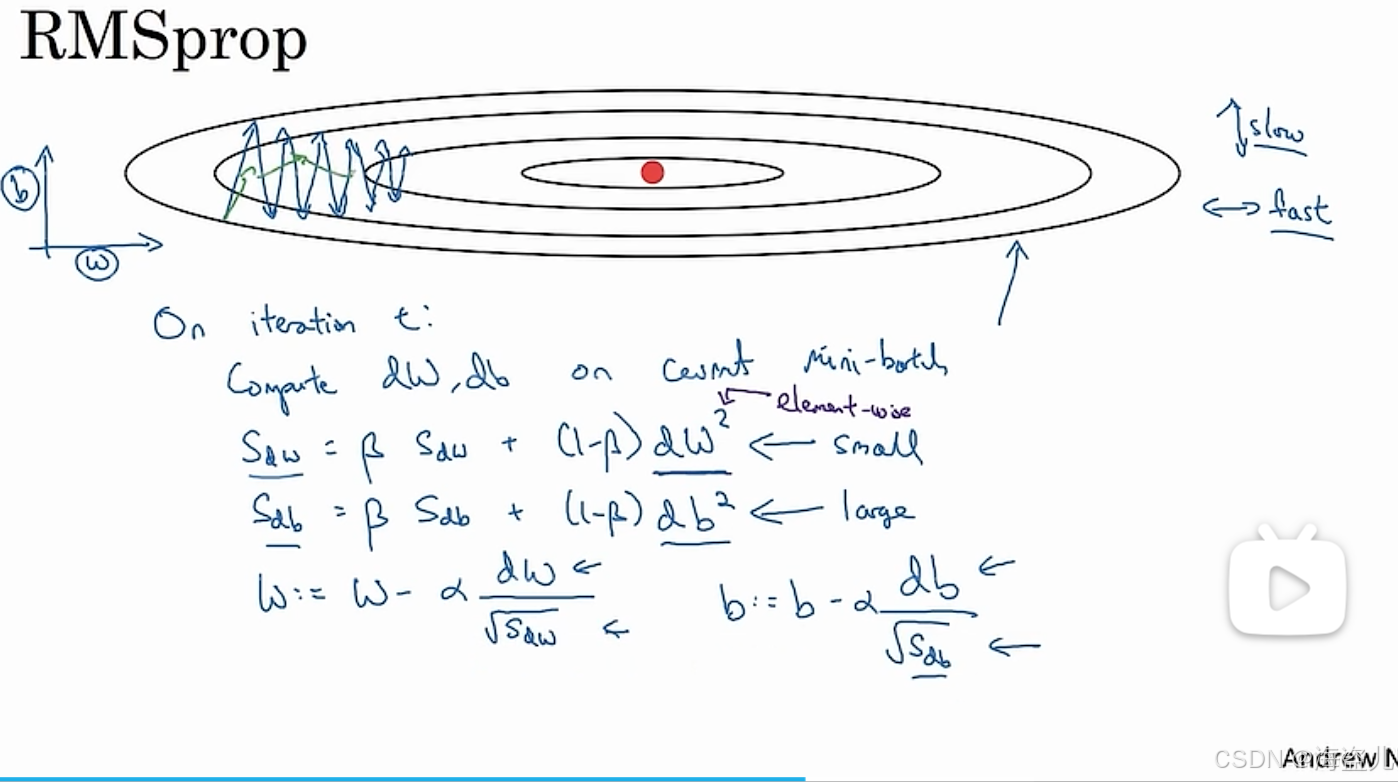 RMSprop
slow
b
fast
w
On iteration t:
Compute dW, db on current mini-batch
element-wise
S_dw = β S_dw + (1-β) dW² ← small
S_db = β S_db + (1-β) db² ← large
W := W - α dW/√S_dw b := b - α db/√S_db
CSDN @海盗儿
Andrew N